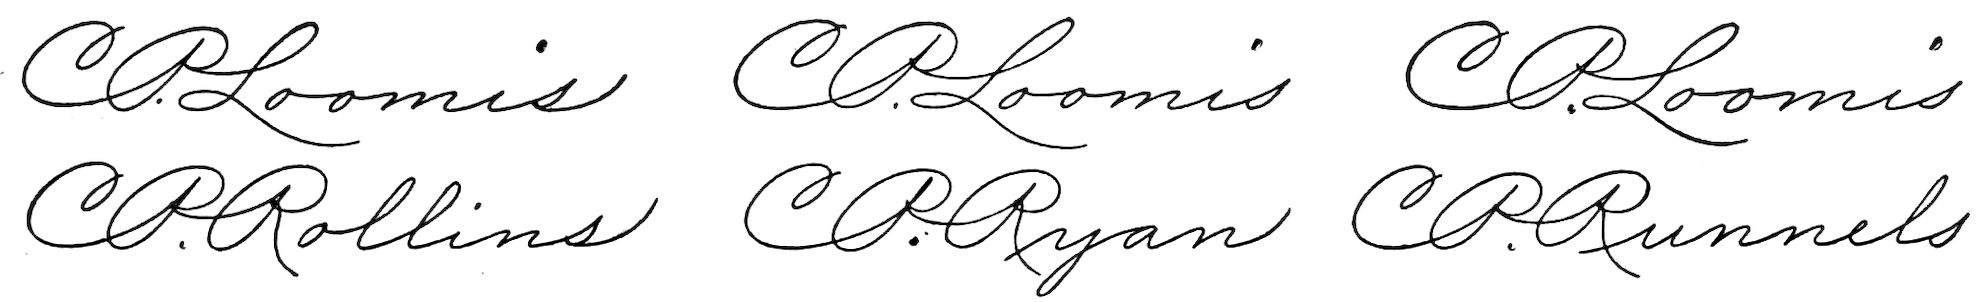 C.P. Loomis C.P. Loomis C.P. Loomis
C.P. Rollins C.P. Ryan C.P. Runnels